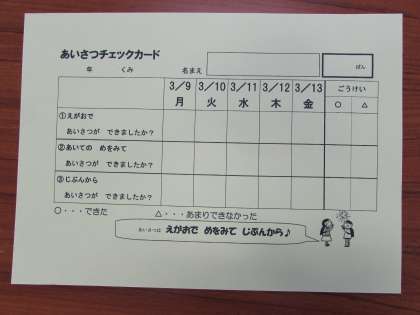 あいさつチェックカード
年 くみ 名まえ ばん
3/9 3/10 3/11 3/12 3/13 ごうけい
月 火 水 木 金 ○ △
①えがおで
あいさつが できましたか?
②あいての めをみて
あいさつが できましたか?
③じぶんから
あいさつが できましたか?
○・・・できた △・・・あまりできなかった
あいさつは えがおで めをみて じぶんから♪